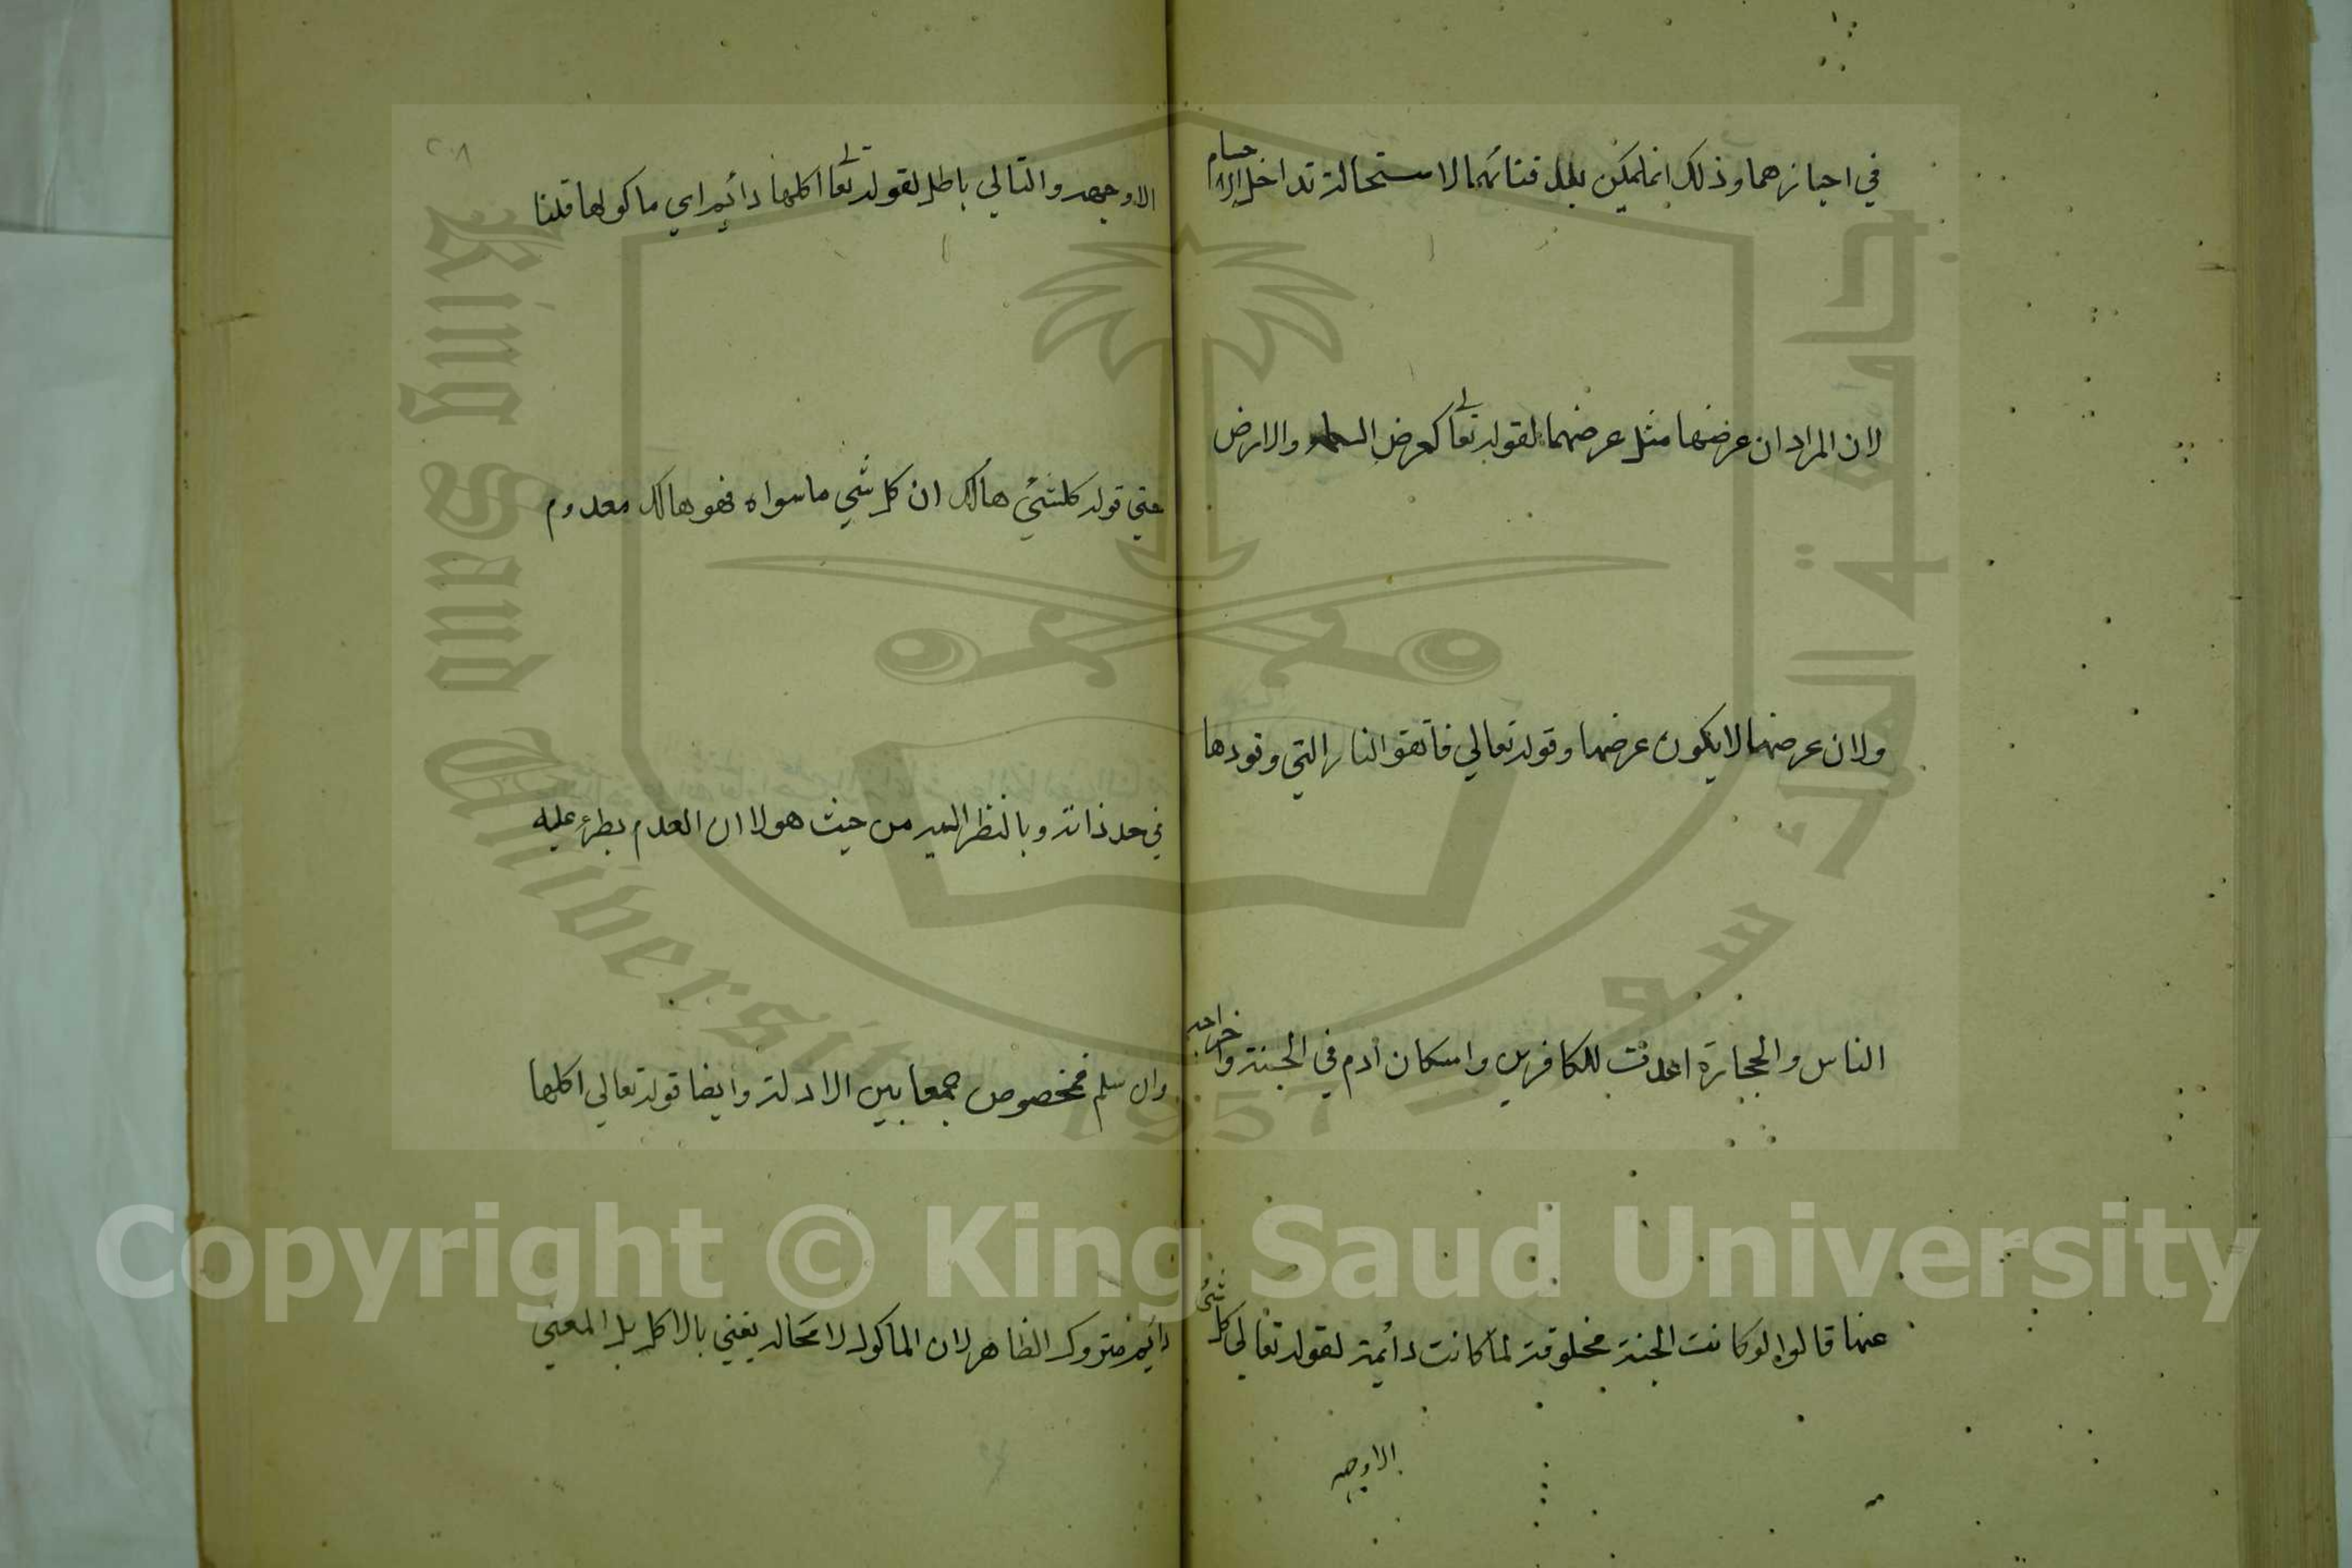 في احيازهما وذلك انما يمكن بعد فنائهما لاستحالة تداخل الاجسام
لان المراد ان عرضها مثل عرضهما لقوله تعالى كعرض السماء والارض
ولان عرضهما لا يكون عرضها وقوله تعالي فاتقوا النار التي وقودها
الناس والحجارة اعدت للكافرين واسكان ادم في الجنة واخراجه
عنها قالوا لو كانت الجنة مخلوقة لما كانت دائمة لقوله تعالي كل شئ
الا وجهه
٢٠٨
الا وجهه والتالي باطل لقوله تعالى اكلها دائم اي ماكولها قلنا
معني قوله كل شئ هالك ان كل شي ما سواه فهو هالك معدوم
في حد ذاته وبالنظر اليه من حيث هو لا ان العدم يطرء عليه
وان سلم فمخصوص جمعا بين الادلة وايضا قوله تعالى اكلها
دائم متروك الظاهر لان الماكول لا محالة يفني بالاكل بل المعني
King Saud University
جامعة الملك سعود
1957
Copyright © King Saud University